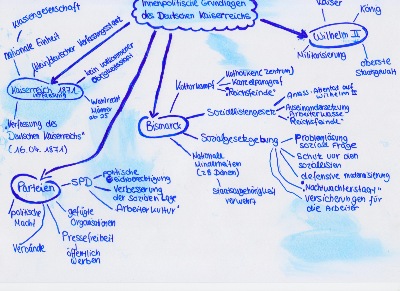 Innenpolitische Grundlagen
des Deutschen Kaiserreichs
Klassengesellschaft
nationale Einheit
kein vollkommener
Obrigkeitsstaat
Kaiserreich 1871
Verfassung
Wahlrecht
Männer
ab 25
"Verfassung des
Deutschen Kaiserreichs"
(16.04.1871)
Kaiser
König
Wilhelm II
Militarisierung
oberste
Staatsgewalt
Bismarck
Kulturkampf
Katholiken (Zentrum)
Kanzelparagraf
"Reichsfeinde"
Sozialistengesetz
Anlass: Attentat auf
Wilhelm I
Auseinandersetzung
Arbeiterklasse
"Reichsfeinde"
Sozialgesetzgebung
Problemlösung
soziale Frage
Schutz vor den
Sozialisten
defensive Modernisierung
"Nachtwächterstaat"
Versicherungen für
die Arbeiter
Nationale
Minderheiten
(z.B. Dänen)
Staatszugehörigkeit
verwehrt
Parteien
SPD
politische
Gleichberechtigung
Verbesserung
der sozialen Lage
"Arbeiterkultur"
politische
Macht
Verbände
gefügte
Organisationen
Pressefreiheit
öffentlich
werben